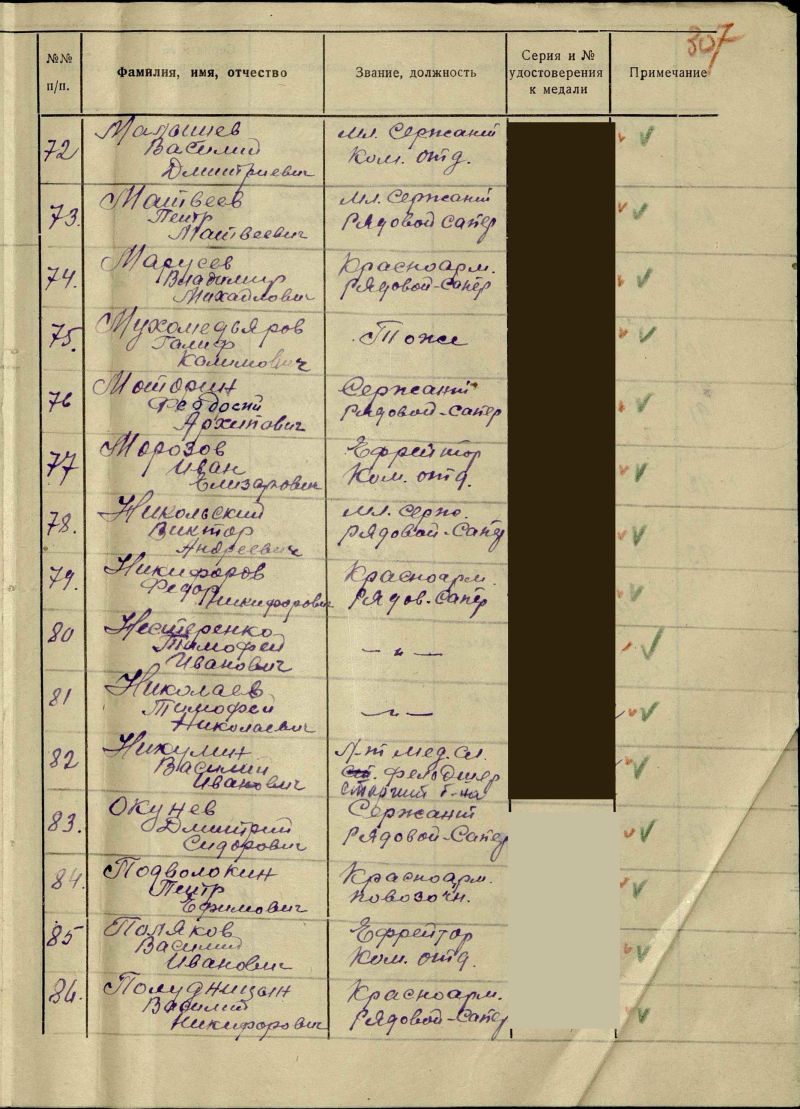 307
№№ п/п.
Фамилия, имя, отчество
Звание, должность
Серия и № удостоверения к медали
Примечание
72
Малышев
Василий
Дмитриевич
мл. сержант
Ком. отд.
73.
Матвеев
Петр
Матвеевич
мл. сержант
Рядовой сапер
74.
Марусев
Владимир
Михайлович
Красноарм.
Рядовой-сапер
75.
Мухомедьяров
Галиф
Калимович
Тоже
76
Моторин
Феодосий
Архипович
Сержант
Рядовой-сапер
77
Морозов
Иван
Елизарович
Ефрейтор
Ком. отд.
78.
Никольский
Виктор
Андреевич
мл. серж.
Рядовой-сапер
79.
Никифоров
Федор
Никифорович
Красноарм.
Рядов.-сапер
80
Нестеренко
Тимофей
Иванович
— " —
81
Николаев
Тимофей
Николаевич
— " —
82
Никулин
Василий
Иванович
Л-т мед. сл.
ст. фельдшер
старший б-на
83.
Окунев
Дмитрий
Сидорович
Сержант
Рядовой-сапер
84.
Подволокин
Петр
Ефимович
Красноарм.
повозочн.
85
Поляков
Василий
Иванович
Ефрейтор
Ком. отд.
86.
Полудницын
Василий
Никифорович
Красноарм.
Рядовой-сапер